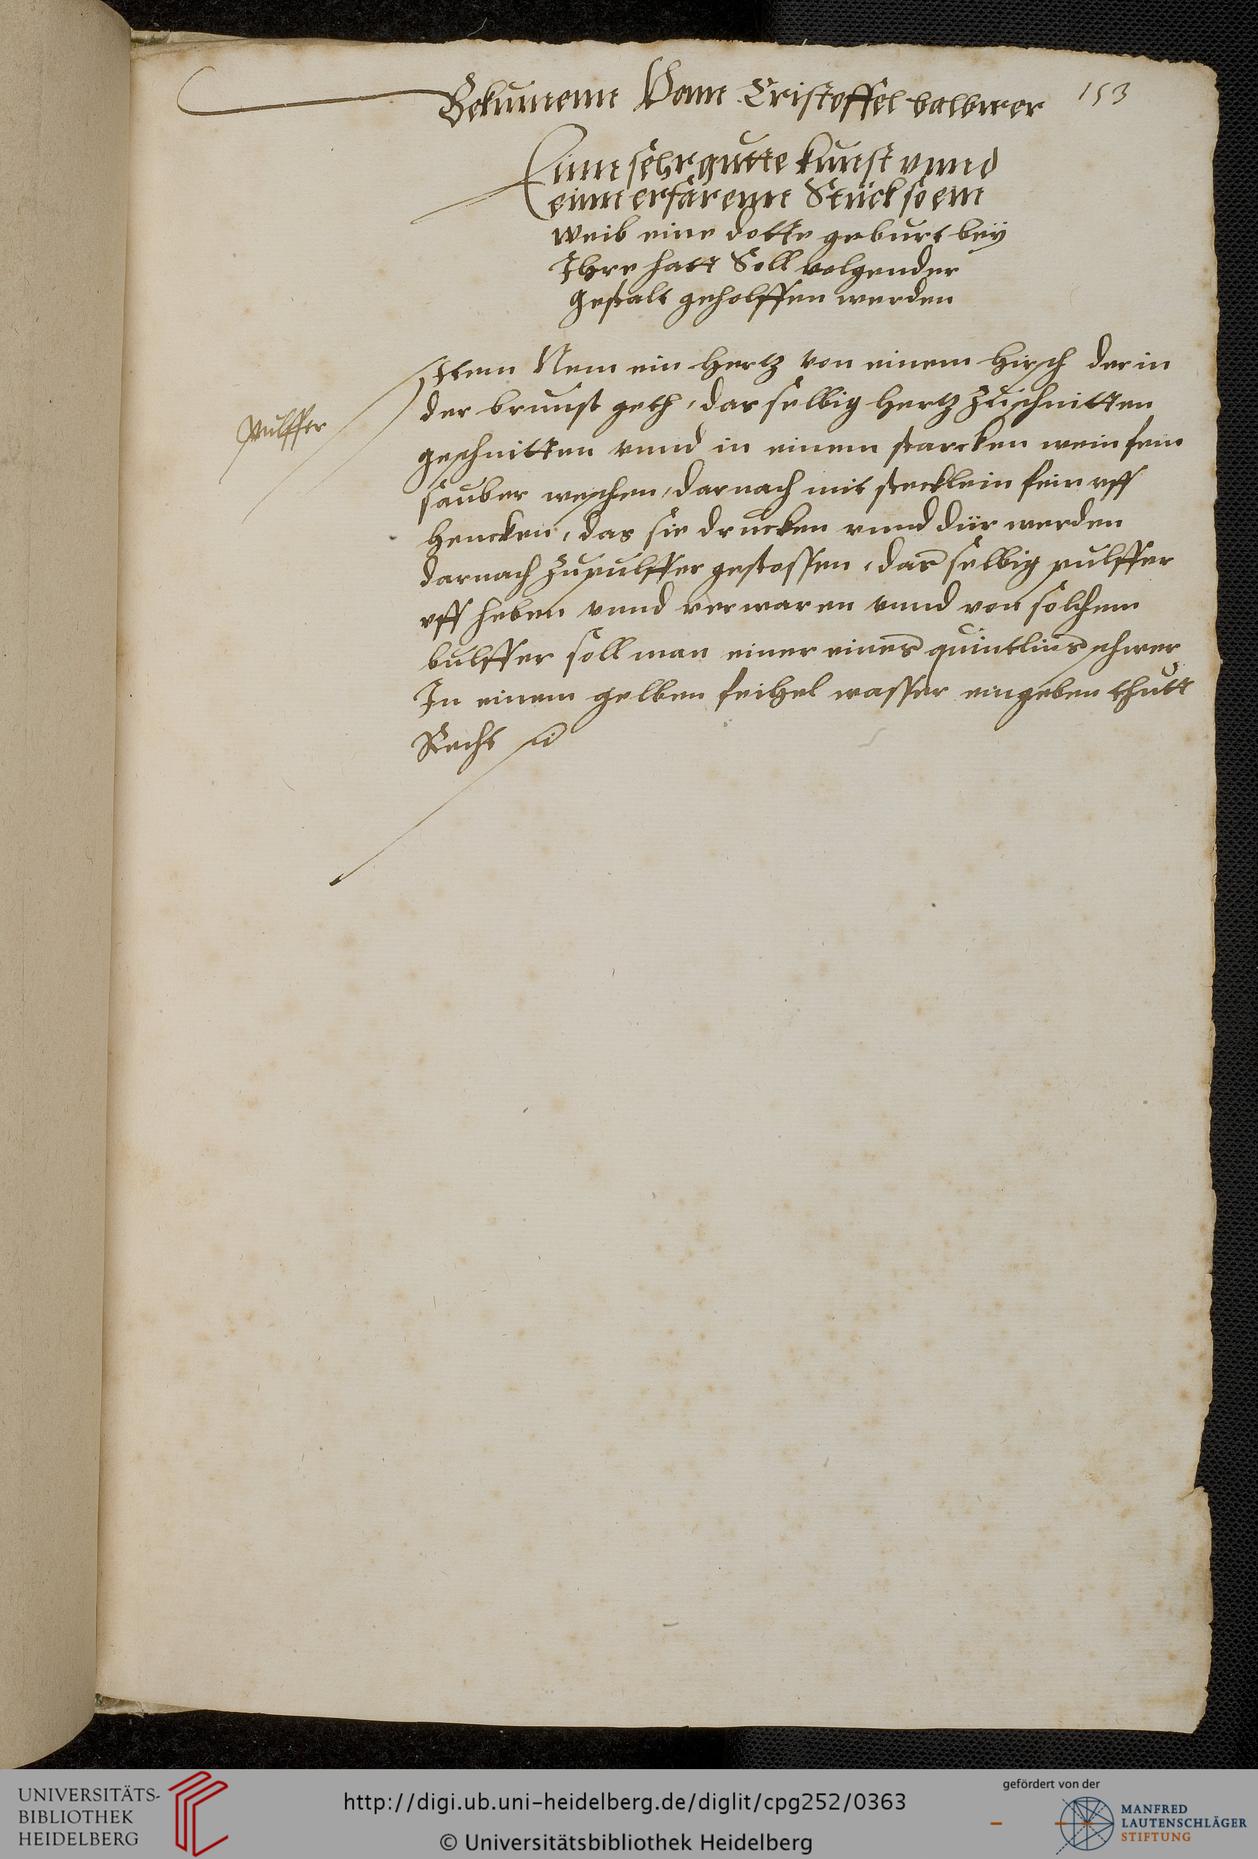 Bekumenn Vonn Cristoffel balbirer
153
Einn sehr gutte kunst vnnd
einn erfarenn Stück so ein
weib eine dotte geburt bey
Ihre hatt Soll volgender
gestalt geholffen werden
pulffer
Item Nem ein hertz von einem hirsch der in
der brunst geth, das selbig hertz zu schnitten
geschnitten vnnd in einem starcken wein fein
sauber weschen, darnach mit stecklein fein vff
hencken, das sie drucken vnnd dür werden
darnach zu pulffer gestossen, das selbig pulffer
vff heben vnnd verwaren vnnd von solchem
bulffer soll man einer eines quintlins schwer
In einem gelben feihel wasser eingeben thutt
Recht
UNIVERSITÄTS-
BIBLIOTHEK
HEIDELBERG
http://digi.ub.uni-heidelberg.de/diglit/cpg252/0363
© Universitätsbibliothek Heidelberg
gefördert von der
MANFRED
LAUTENSCHLÄGER
STIFTUNG